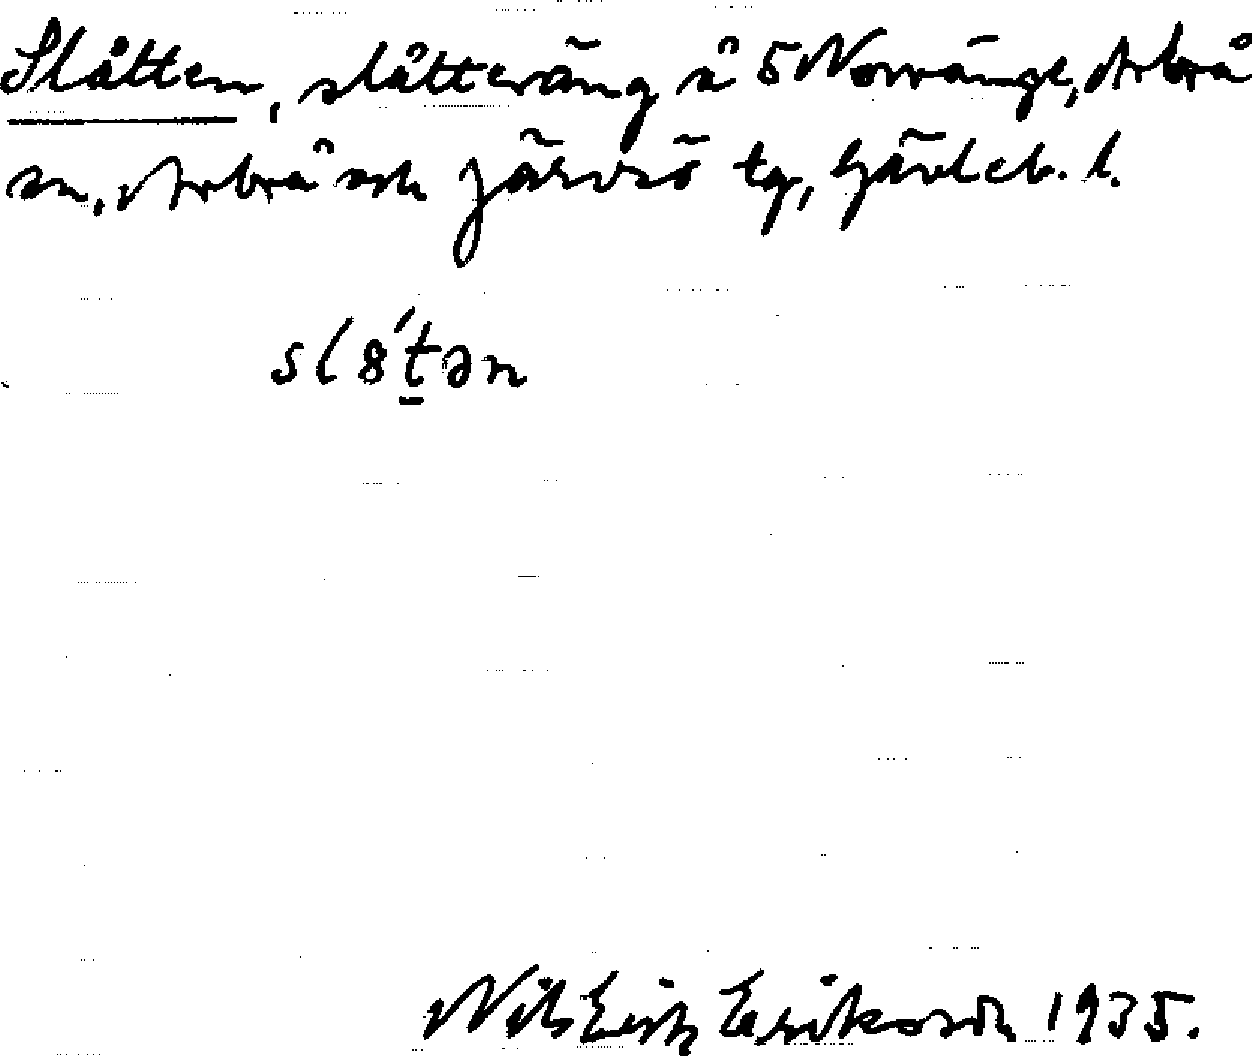 Slåtten, slåtteräng å 5 Norränge, Arbrå
sn, Arbrå och Järvsö tg, Gävleb. l.
sl8́t̲ən
Nils Erik Eriksson 1935.